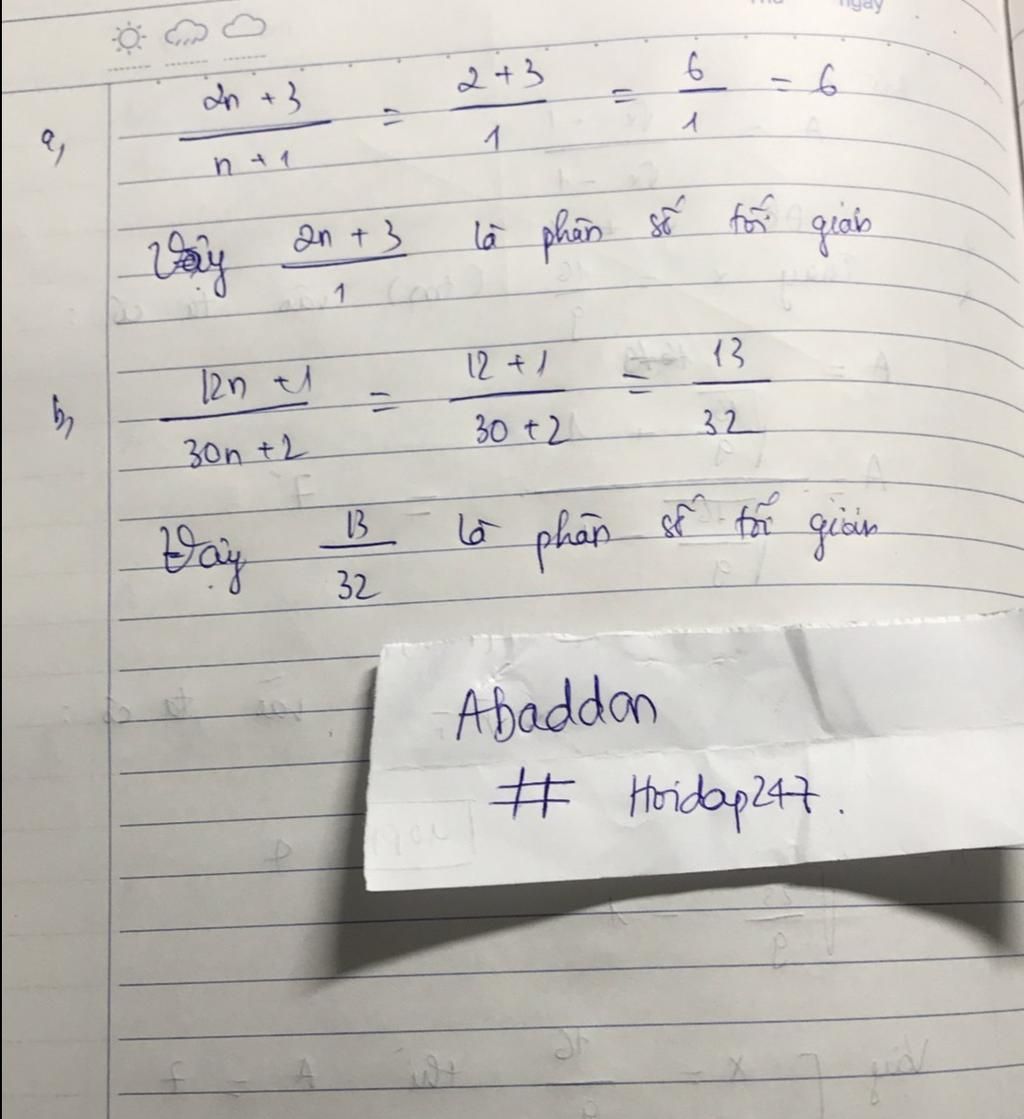 ngày
a, 2n + 3 / n + 1 = 2 + 3 / 1 = 6 / 1 = 6
Vậy 2n + 3 / 1 là phân số tối giản
b, 12n + 1 / 30n + 2 = 12 + 1 / 30 + 2 = 13 / 32
Vậy 13 / 32 là phân số tối giản
Abaddon
# Hoidap247.